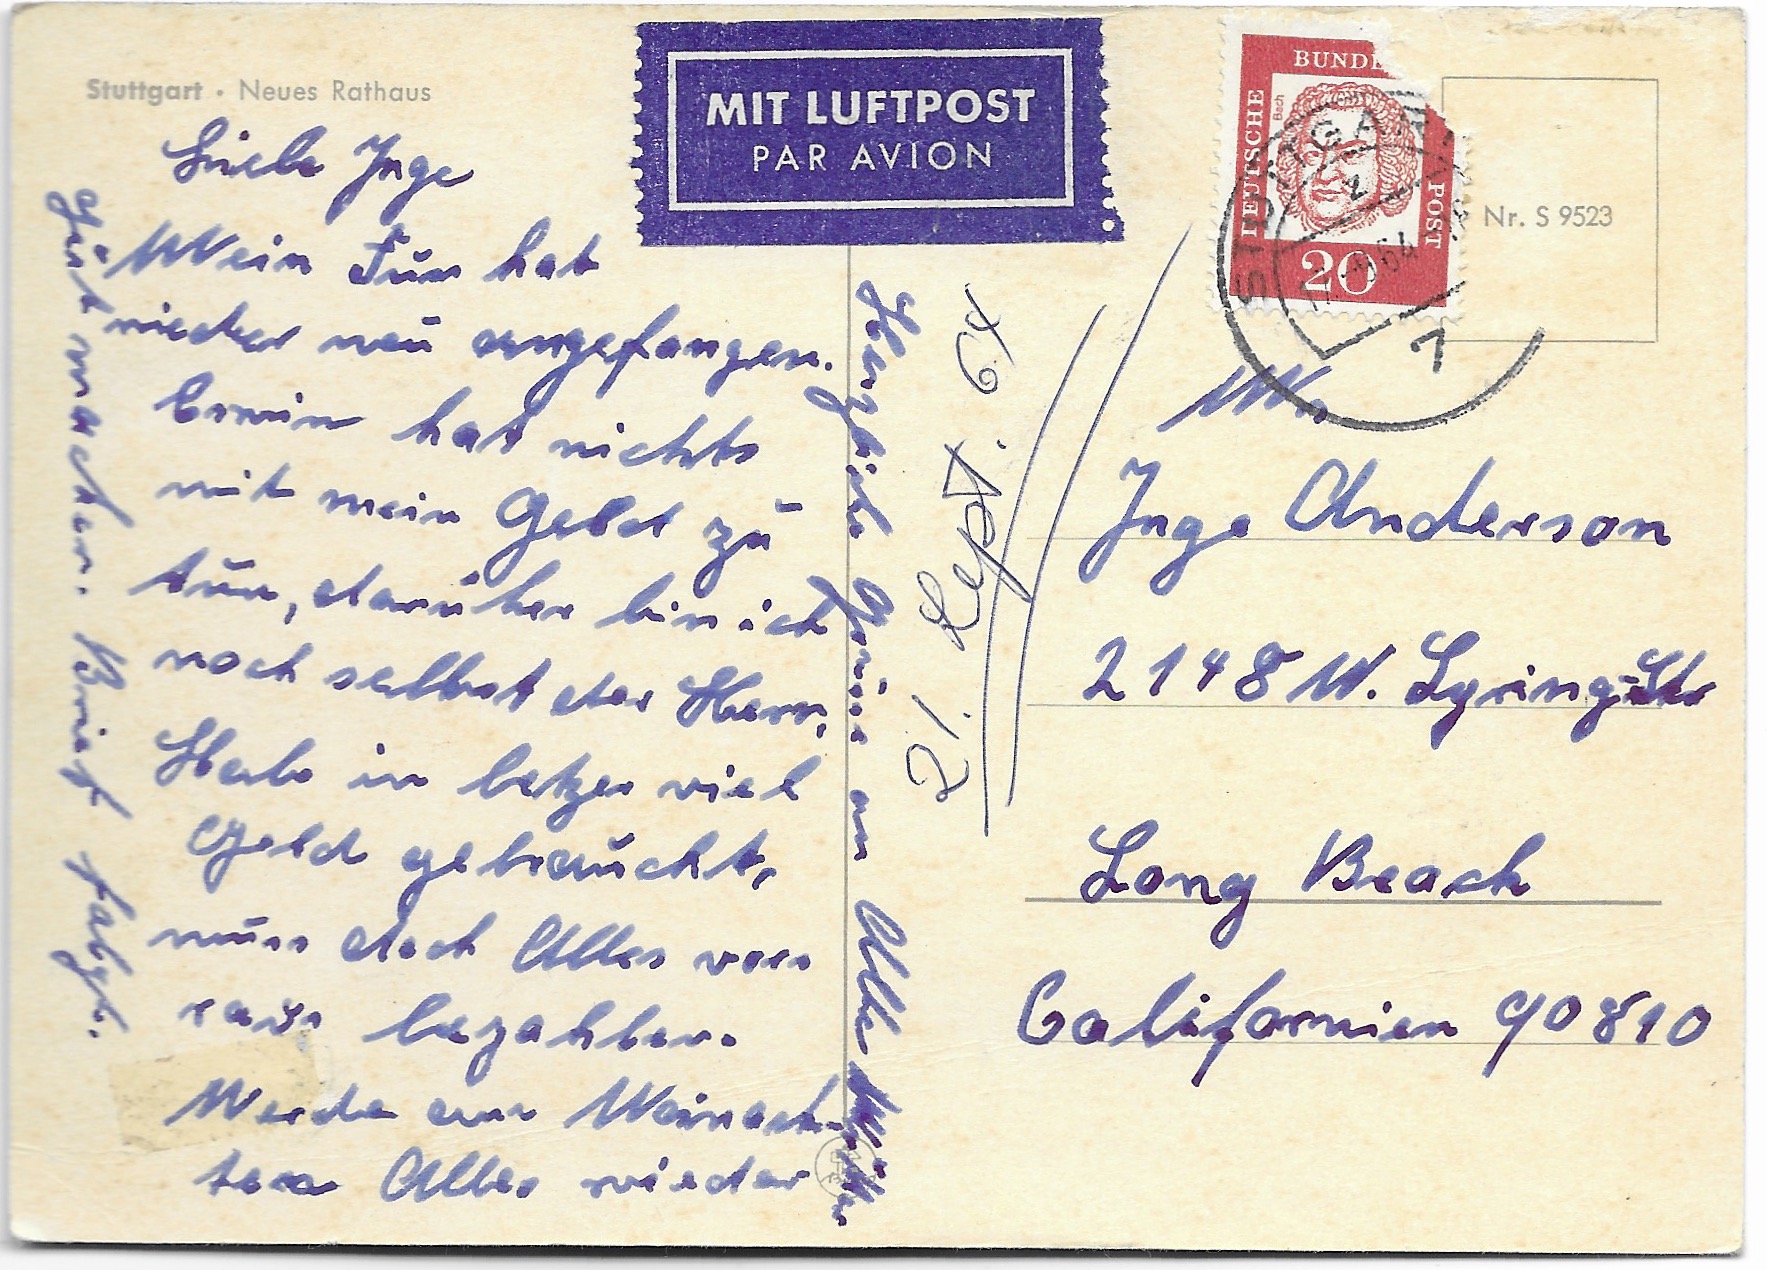 Stuttgart · Neues Rathaus
MIT LUFTPOST
PAR AVION
BUNDE
DEUTSCHE
POST
Bach
20
STUTTGART
7
Nr. S 9523
Liebe Inge
Mein hat
wieder neu angefangen.
Erwin hat nichts
mit mein Geld zu
tun, darüber bin ich
noch selbst der Herr,
Hab in letzer viel
Geld gebraucht,
muss doch Alles vor
raus bezahlen.
Werde an Weinach-
ten Alles wieder
gut machen. Brief folgt.
Herzliche Grüsse an Alle Mutter
21. Sept. 64
Mrs
Inge Anderson
2148 W. Spring-Str
Long Beach
Californien 90810